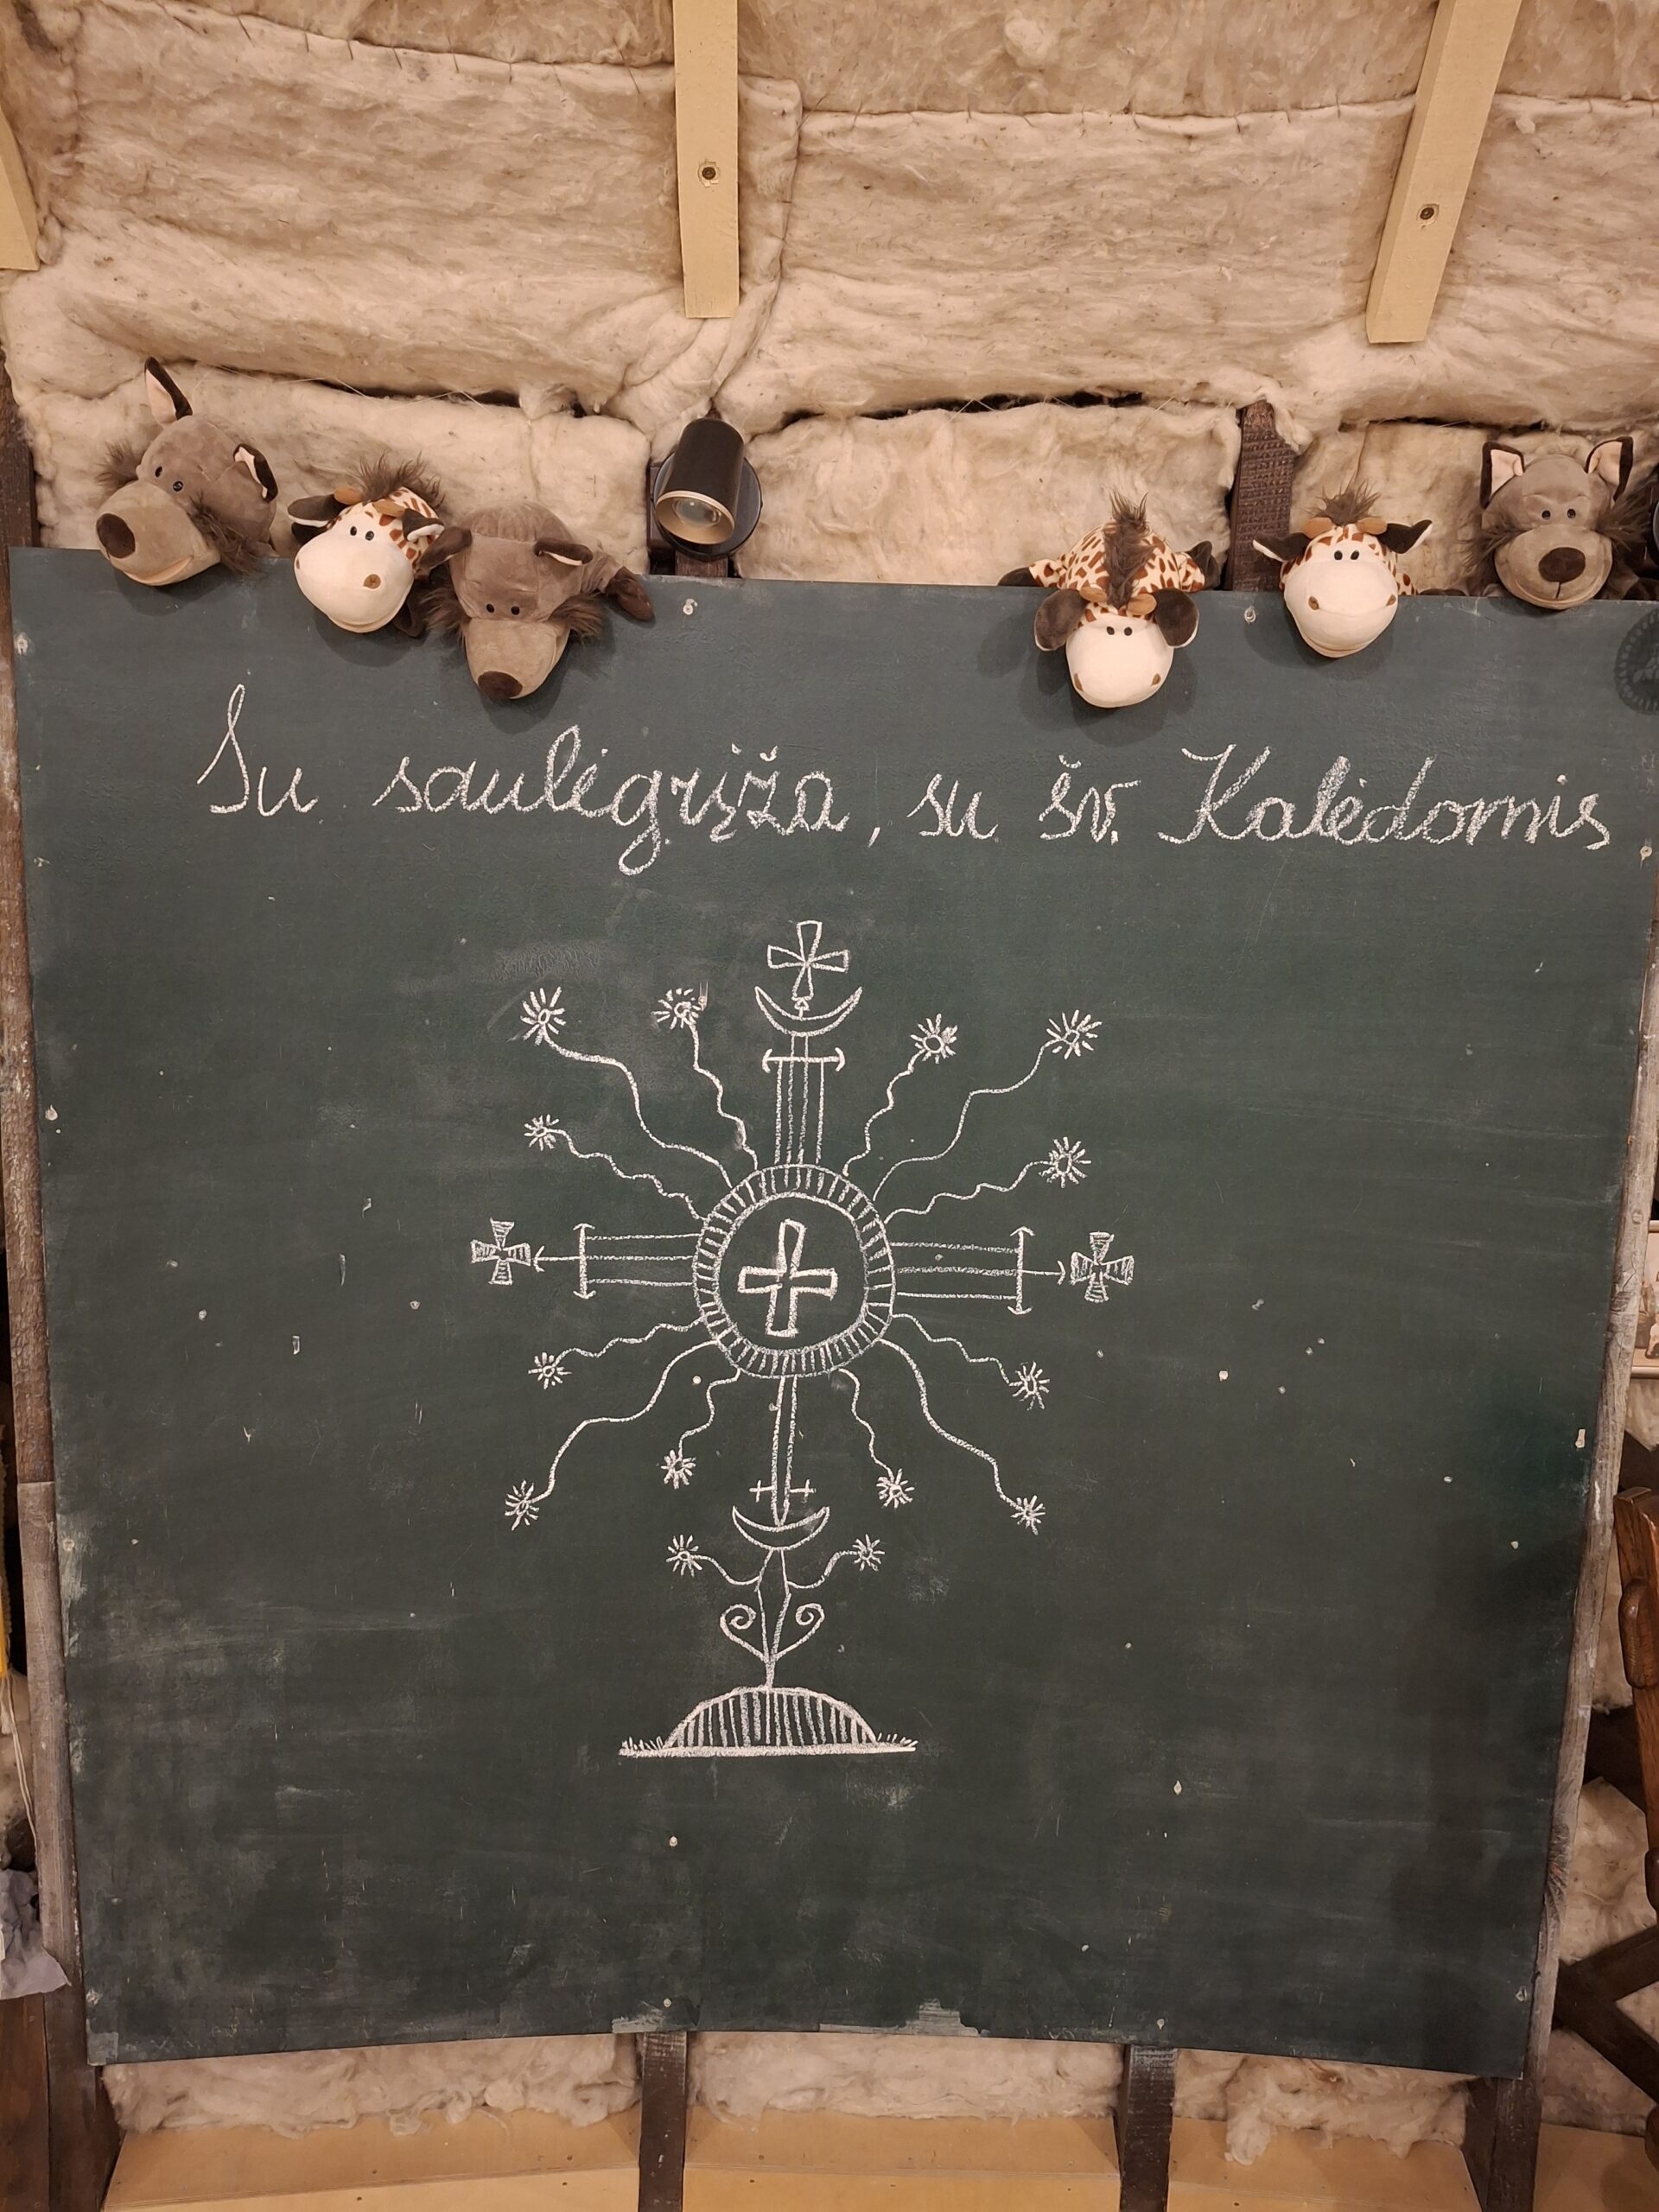 Su saulėgrįža, su šv. Kalėdomis